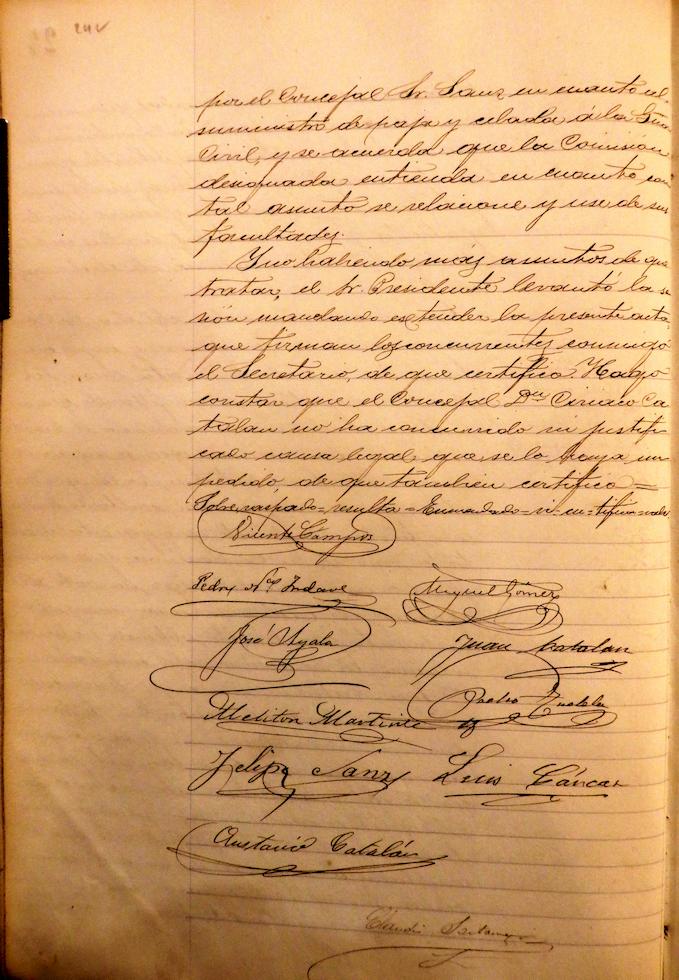 24v
por el Concejal Sr. Sanz en cuanto al
suministro de paja y cebada á la Gua
Civil, y se acuerda que la Comisión
designada entienda en cuanto con
tal asunto se relacione y use de sus
facultades.
Y no habiendo más asuntos de que
tratar, el Sr. Presidente levantó la se
sión mandando extender la presente acta
que firman los concurrentes conmigo
el Secretario, de que certifico. Hago
constar que el Concejal Dn Ciriaco Ca
talan no ha concurrido ni justifi
cado causa legal que se lo haya im
pedido, de que tambien certifico=
Sobre raspado=resulta=Enmendado=
Vicente Campos
Pedro Indave
Miguel Gómez
José Ayala
Juan Catalan
Meliton Martinez
Pedro
Felipe Sanz
Luis Cáncar
Catalán
Claudio